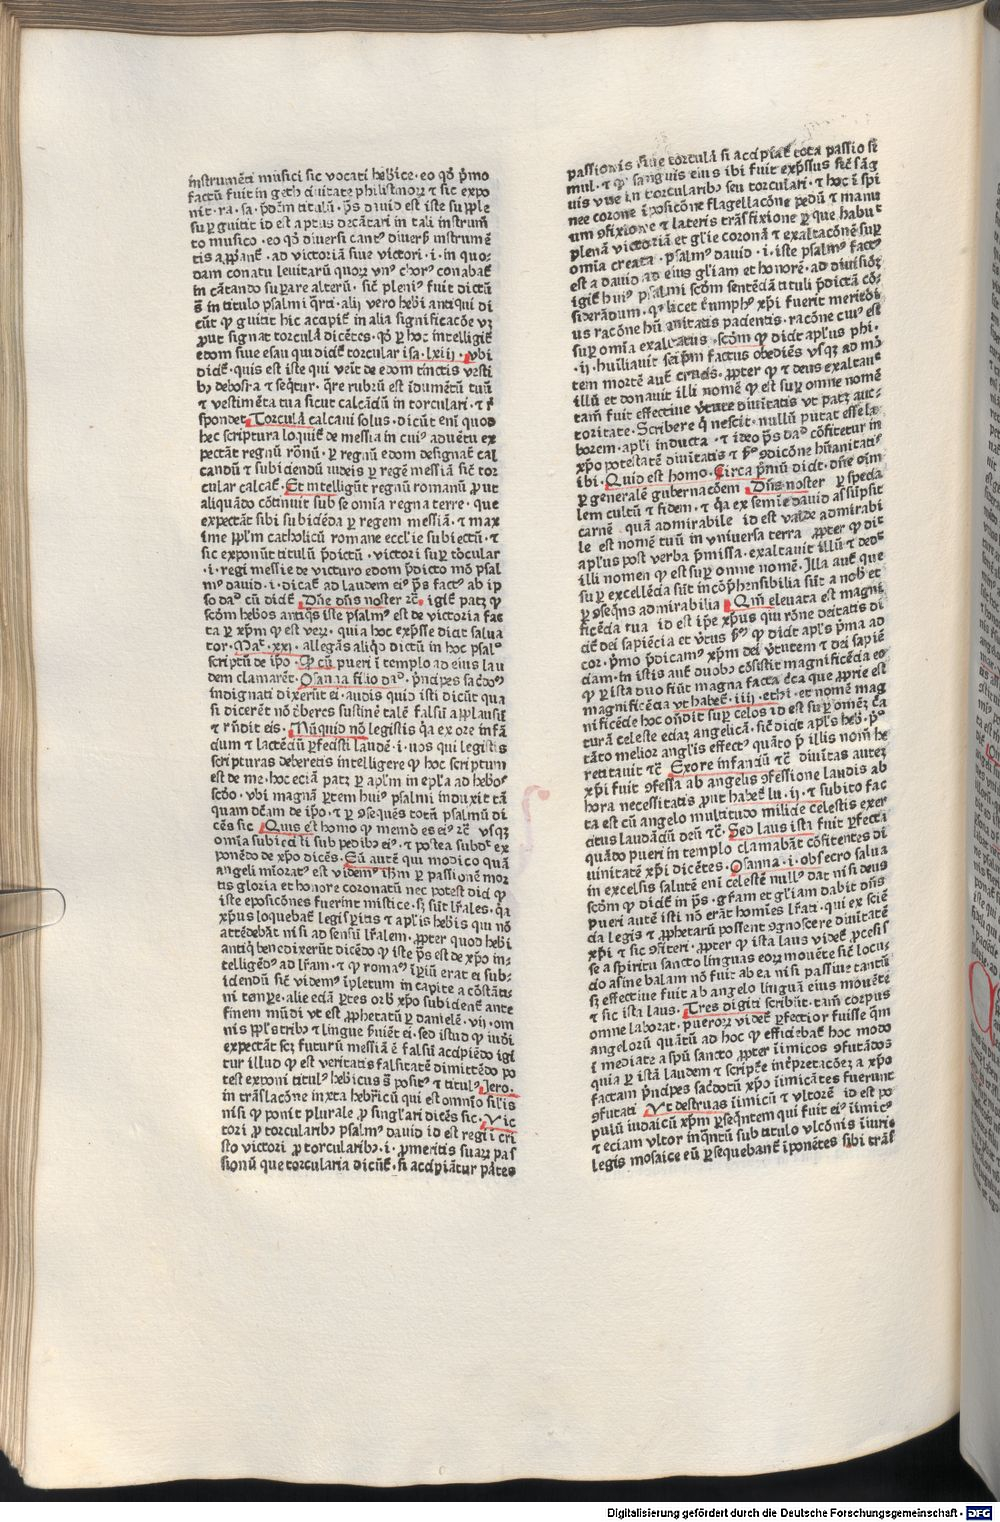 instrumēti musici sic vocati hebice · eo qđ p̄mo
factū fuit in geth ciuitate philistinoꝝ ⁊ sic expo
nit · ra · sa · p̄dc̄m titulū · p̄s dauid est iste su pple
suꝑ guitit id est aptus decātari in tali instrum̄
to musico · eo qđ diuersi cantꝰ diuers̄ instrumē
tis · ad victoriā siue victori · i · in quo
dam conatu leuitarū quoꝝ vnꝰ chorꝰ conabat̄
in cātando suꝑare alterū · sic̄ pleniꝰ fuit dictū
s̄ in titulo psalmi q̄rti · alij vero heb̄i antiqui di
cūt ꝙ guitit hic accipit̄ in alia significacōe vꝫ
ꝓut signat torculā dicētes · qđ ꝑ hoc intelligit̄
edom siue esau qui dicit̄ torcular isa · lxiij · vbi
dicit̄ · quis est iste qui veīt de edom tinctis vesti
bꝫ de bosra ⁊ seq̄tur · q̄re rubrū est īdumētū tuū
⁊ vestimēta tua sicut calcācū in torculari · ⁊ r̄
spondet · Torculā calcaui solus · dicūt eni quod
hec scriptura loquit̄ de messia in cuiꝰ aduētu ex
pectāt regnū rōnū · ꝑ regnū edom designat̄ cal
candū ⁊ subiciendū iudeis ꝑ regē messiā sic̄ tor
cular calcat̄ · Et intelligūt regnū romanū ꝓut
aliquādo cōtinuit sub se omīa regna terre · que
expectāt sibi subicīēda ꝑ regem messiā · ⁊ max
ime pplm̄ catholicū romane ecclīe subiectū · ⁊
sic exponūt titulū p̄dictū · victori suꝑ torcular
· i · regi messie de victuro edom p̄dicto mō psal
mꝰ dauid · i · dicat̄ ad laudem eiꝰ p̄s factꝰ ab ip
so daͩ cū dicit̄ · Dn̄e dn̄s noster ꝛc̄ · igit̄ patꝫ ꝙ
scōm hebos antiq̄s iste psalmꝰ est de victoria fac
ta ꝑ xp̄m ꝙ est verꝝ · quia hoc exp̄sse dicit salua
tor · Mat̄ · xxi · allegās aliq̄ dictū in hoc psalͦ
scriptū de ip̄o · Q̄ cū pueri ī templo ad eius lau
dem clamarēt · Osanna filio daͩ · p̄ncipes sacdoꝰ
indignati dixerūt ei · audis quid isti dicūt qua
si dicerēt nō dēberes sustinē talē falsū applausū
⁊ rn̄dit eis · Nūquid nō legistis q̄a ex ore infā
cium ⁊ lactēciū ꝑfecisti laudē · i · uos qui legistis
scripturas deberetis intelligere ꝙ hoc scriptum
est de me · hoc eciā patꝫ ꝑ aplm̄ in epl̄a ad heboꝰ
scōo · vbi magnā ꝑtem huiꝰ psalmi induxit tā
quam dc̄am de ip̄o · ⁊ ꝑ ꝯsequēs totū psalmū di
cēs sic · Quis est homo ꝙ memō es eiꝰ ꝛc̄ vsqꝫ
omīa subiecisti sub pedibꝫ eiꝰ · ⁊ postea subdͭ ex
ponēdo de xp̄o dicēs · Eū autē qui modico quā
angeli mīoratꝰ est videmꝰ ihm̄ ꝑ passionē mor
tis gloria et honore coronatū nec potest dici ꝙ
iste eposicōnes fuerint mistice · sꝫ sūt lr̄ales · q̄a
xp̄us loquebat̄ legisꝑitis ⁊ apl̄is hebīs qui nō
attēdebāt nisi ad sensū lr̄alem · ꝓpter quod hebī
antiq̄ benedixerūt dicēdo ꝙ iste p̄s est de xp̄o in
telligēdꝰ ad lr̄am · ⁊ ꝙ romaꝰ īꝑiū erat ei sub
iciendū sic̄ videmꝰ īpletum in capite a cōstāti
ni tempe · alie eciā ꝑtes orbꝭ xp̄o subicient̄ ante
finem mūdi vt est ꝓphetatū ꝑ danielē · vij · om
nis ppl̄s tribꝰ ⁊ lingue ꝑuiēt ei · sed istud ꝙ iudi
expectāt scꝫ futurū messiā ē falsū accipiēdo igi
tur illud ꝙ est veritatis falsitatē dimittēdo po
test exponi titulꝰ hebicus s̄ positꝰ ⁊ titulꝰ Jero ·
in trāslacōne iuxta hebr̄icū qui est omnīo sil̄is
nisi ꝙ ponit plurale ꝓ singl̄ari dicēs sic · Vic
tori ꝓ torcularibꝫ psalmꝰ dauid id est regi i cri
sto victori ꝓ torcularibꝫ · i · ꝓmeritis suaꝝ pas
sionū que torcularia dicūt̄ · si accipiātur ꝑtes
passionis siue torculā si accipiat̄ tota passio si
mul · ⁊ ꝙ sanguis eius ibi fuit exp̄ssus sic̄ sāg
uis vue in torcularibꝫ seu torculari · ⁊ hoc ī spi
nee corone īpositōne flagellacōne pedū ⁊ manu
um ꝯfixione ⁊ lateris trāsfixione ꝑ que habuͭ
plenā victoriā et gl̄ie coronā ⁊ exaltacōnē suꝑ
omīa creata · psalmꝰ dauid · i · iste psalmꝰ factꝰ
est a dauid ad eius gl̄iam et honorē · ad diuisiōꝫ
igit̄ huiꝰ psalmi scōm sentēciā tituli p̄dictā cō
siderādum · qꝫ licet t̄umphꝰ xp̄i fuerit meritōi
us racōne hūanitatis pacientis · racōne cuiꝰ est
suꝑ omīa exaltatus · scōm ꝙ dicit apl̄us phi ·
· ij · hūiliauit seip̄m factus obediēs vsqꝫ ad mō
tem mortē aut̄ crucis · ꝓpter ꝙ ⁊ deus exaltauͭ
illū et donauit illi nomē ꝙ est suꝑ omne nomē
tam̄ fuit effectiue v̄tute diuitatis vt patꝫ auc
toritate · Scribere q̄ nescit · nullū putat esse la
borem · apl̄i inducta · ⁊ ideo p̄s daͩ cōfitetur in
xp̄o potestatē diuitatis ⁊ sͦ ꝯdicōnē hūanitatiꝰ
ibi · Quid est homo · Circa p̄mū dicit · dn̄e oīm
ꝑ generalē gubernacōem · Dn̄s noster ꝑ specia
lem cultū ⁊ fidem · ⁊ q̄a ex semīe dauid assūpsit
carnē quā admirabile id est valde admirabi
le est nomē tuū in vniuersa terra ꝓpter ꝙ dicͭ
apl̄us post verba p̄missa · exaltauit illū ⁊ deꝰ
illi nomen ꝙ est suꝑ omne nomē · Illa aut̄ que
suꝑ excellēcia sūt incōp̄hēnsibilia sūt a nobꝭ et
ꝑ ꝯseq̄ns admirabilia · Qm̄ eleuata est magni
ficēcia tua id est ip̄e xp̄us qui rōne deitatis di
cit̄ dei sapiēcia et v̄tus sͫ ꝙ dicit apl̄s p̄ma ad
cor · p̄mo p̄dicamꝰ xp̄m dei v̄tutem ⁊ dei sapiē
ciam · in istis aut̄ duobꝫ cōsistit magnificēcia eo
ꝙ ꝑ ista duo fiūt magna facta c̄ca que ꝓprie est
magnificēcia vt habet̄ · iiij · ethi · et nomē mag
nificēcie hoc on̄dit suꝑ celos id est suꝑ omēꝫ c̄a
turā celeste eciaꝫ angelicā · sic̄ dicit apl̄s heb̄ · pͦ
tāto melior angl̄is effectꝰ quāto p̄ illis nom̄ he
reditauit ⁊c̄ · Exore infanciū ⁊c̄ diuitas autez
xp̄i fuit ꝯfessa ab angelis ꝯfessione laudis ab
hora necessitatis ꝓut habet̄ lu · ij · ⁊ subito fac
ta est cū angelo multitudo milicie celestis exer
citus laudāciū deū ⁊c̄ · Sed laus ista fuit ꝑfecta
quādo pueri in templo clamabāt cōfitentes di
uinitatē xp̄i dicētes · Osanna · i · obsecro salua
in excelsis salutē eni celestē nullꝰ dat nisi deus
scōm ꝙ dicit̄ in p̄s · gr̄am et gl̄iam dabit dn̄s
pueri autē isti nō erāt homīes lr̄ati · qui ex sciē
cia legis ⁊ ꝓphetarū possent ꝯgnoscere diuitatē
xp̄i ⁊ sic ꝯfiteri · ꝓpter ꝙ ista laus videt̄ ꝓcessis
se a spiritu sancto linguas eoꝝ mouēte sic̄ locu
cio asine balam nō fuit ab ea nisi passiue tantū
sꝫ effectiue fuit ab angelo linguā eius mouēte
⁊ sic ista laus · Tres digiti scribūt · tam̄ corpus
omne laborat · pueroꝝ videt̄ ꝑfectior fuisse q̄m
angelorū quātū ad hoc ꝙ efficiebat̄ hoc modo
ī mediate a spū sancto ꝓpter īimicos ꝯfutādos
quia ꝑ istā laudem ⁊ script̄e īt̄pretacōeꝫ a xp̄o
factam p̄ncipes sacdotū xp̄o īimicātes fuerunt
ꝯfutati · Vt destruas īimicū ⁊ vltorē id est po
pulū iudaicū xp̄m ꝑseq̄ntem qui fuit eiꝰ īimicꝰ
⁊ eciam vltor inq̄ntū sub titulo vlcōnis īiurie
legis mosaice eū ꝑsequebant̄ īponētes sibi trās̄
Digitalisierung gefördert durch die Deutsche Forschungsgemeinschaft - DFG